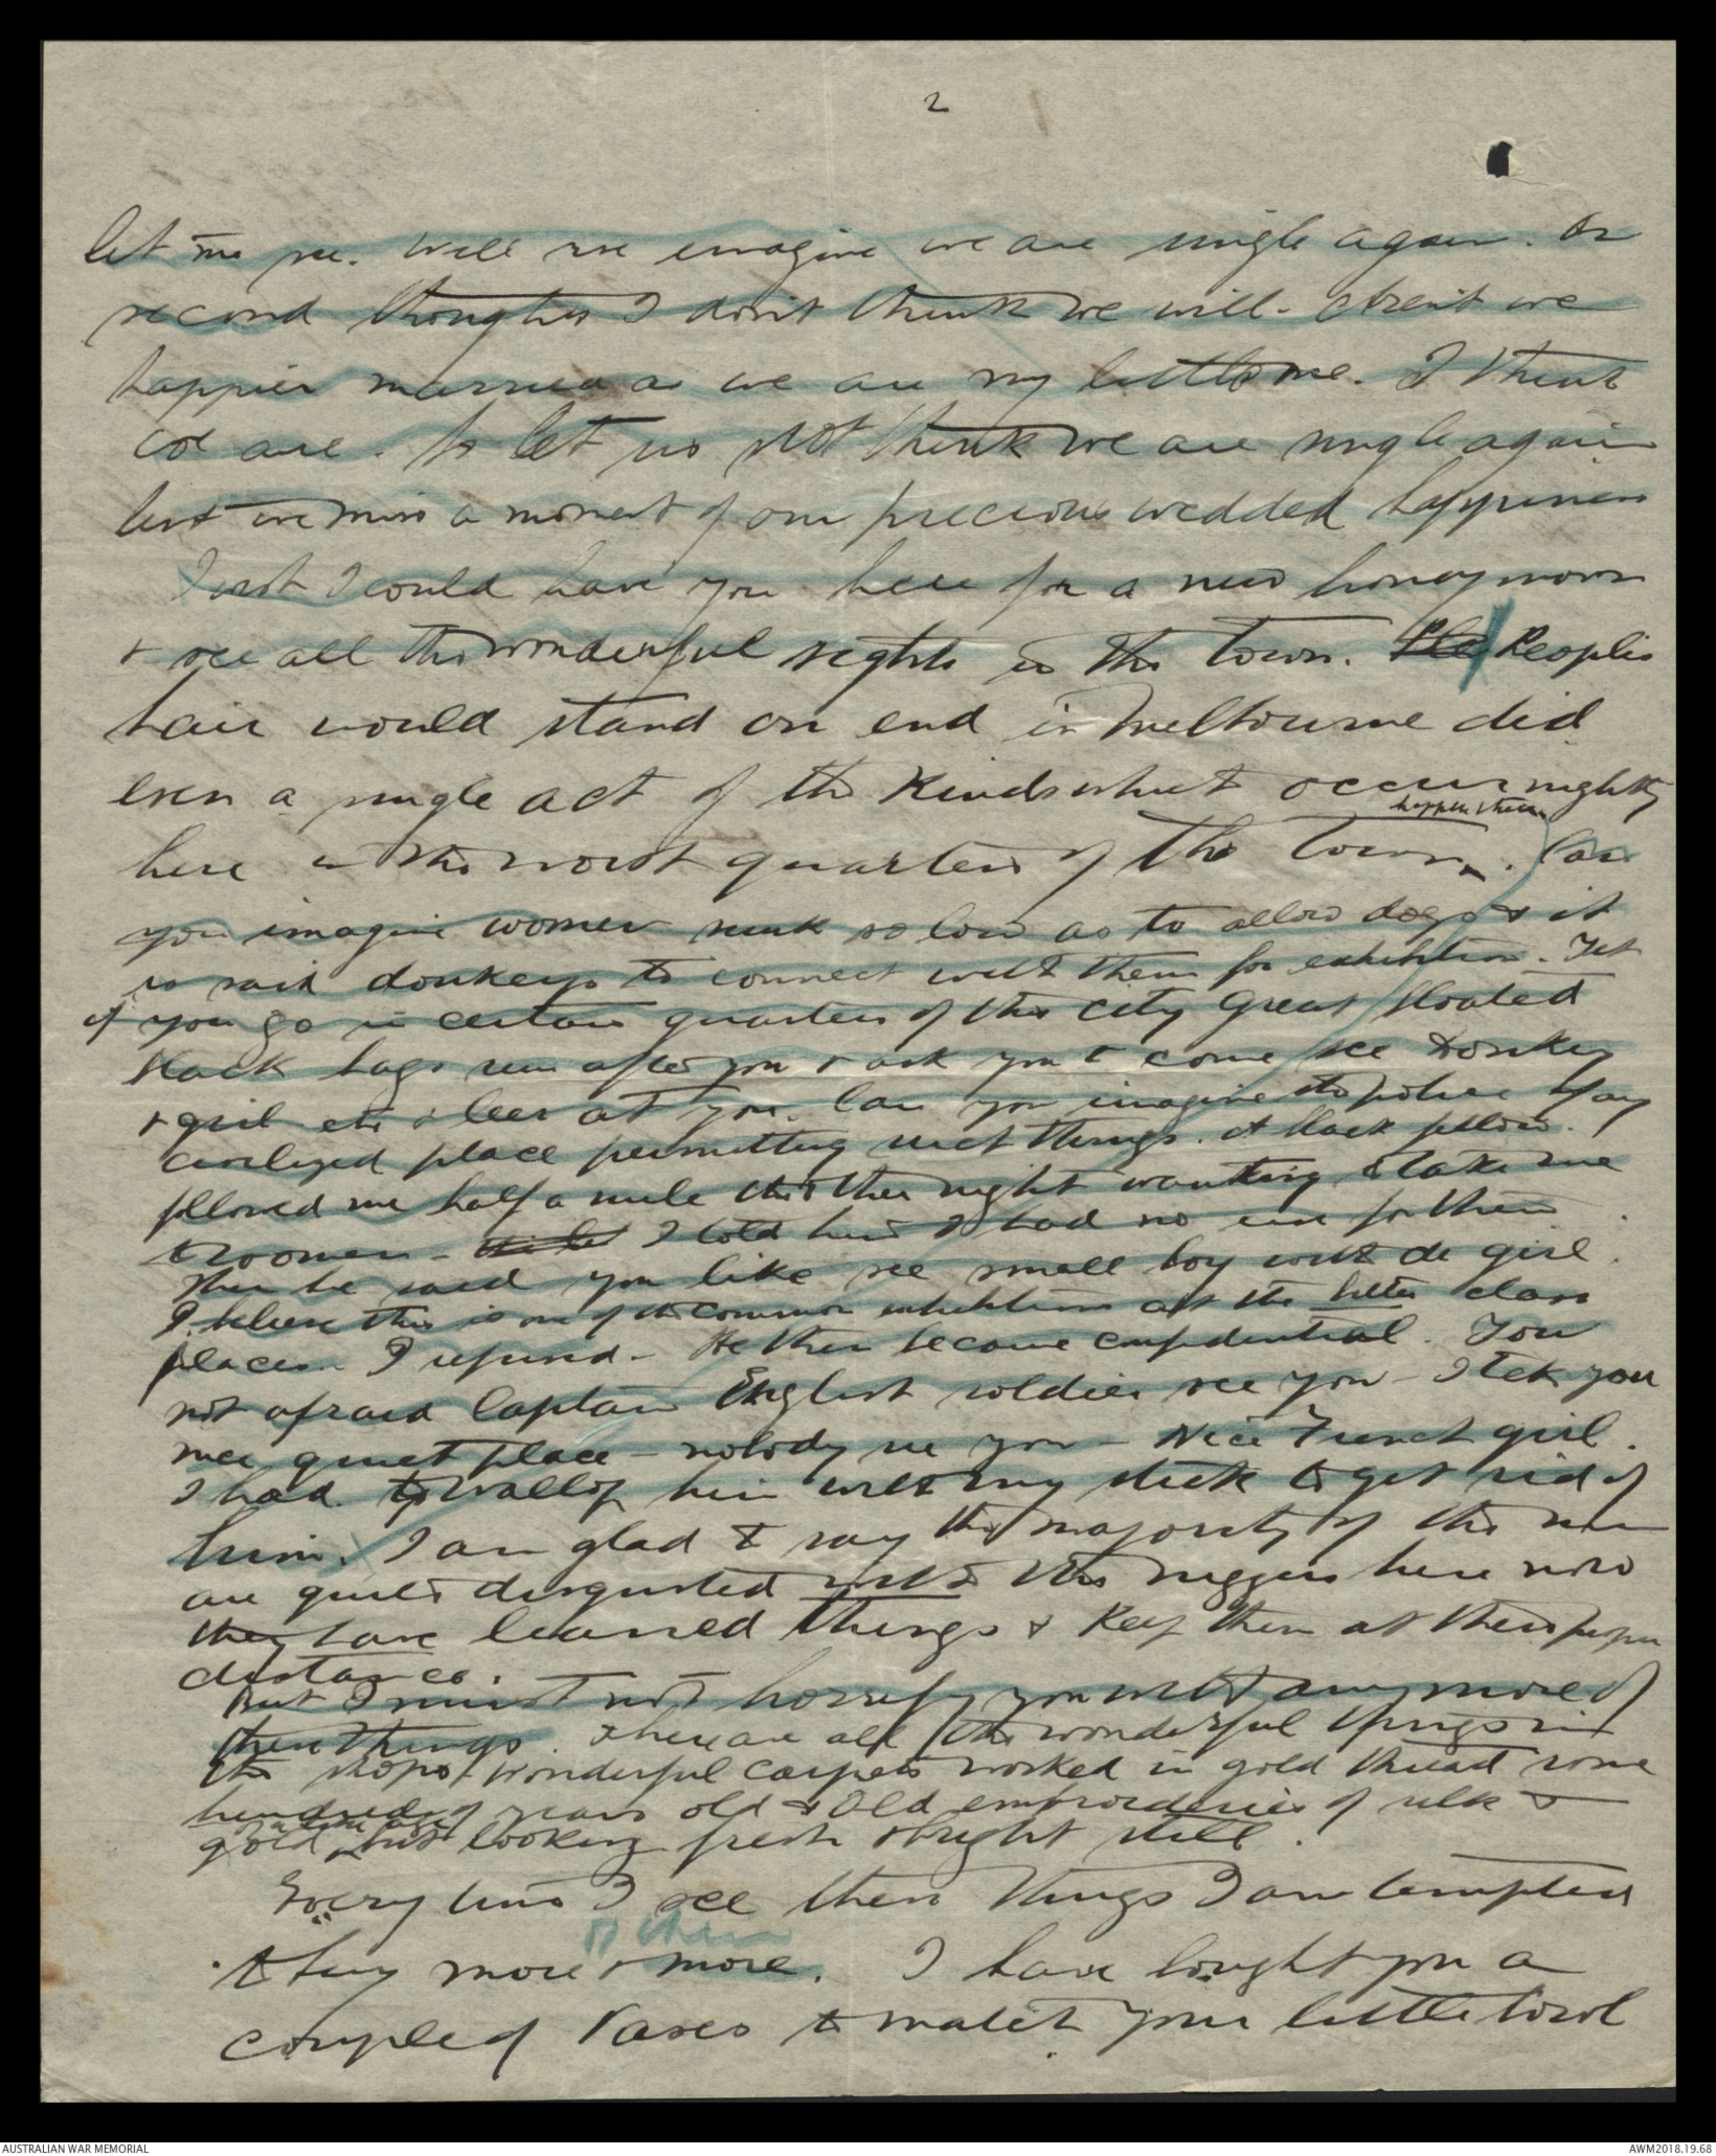 2
let me see. Will we imagine we are single again. On
second thoughts I don't think we will. Aren't we
happier married as we are my little one. I think
we are. So let us not think we are single again
lest we miss a moment of our precious wedded happiness
I wish I could have you here for a new honeymoon
& see all the wonderful sights in the town. Peoples
hair would stand on end in Melbourne did
even a single act of the kinds which occur nightly
happen there
here in the worst quarters of the town. Can
you imagine women sunk so low as to allow dogs & it
is said donkeys to connect with them for exhibition. Yet
if you go in certain quarters of this city great bloated
black hags run after you & ask you to come see donkey
& girl etc & leer at you. Can you imagine the police of any
civilized place permitting such things. A black fellow
followed me half a mile the other night wanting to take me
to women - I told him I had no use for them
Then he said you like see small boy with de girl.
I believe this is one of the common exhibitions at the better class
places. I refused - He then became confidential. You
not afraid Captain English soldier see you - I tek you
nice quiet place - nobody see you - Nice French girl.
I had to wallop him with my stick to get rid of
him. I am glad to say the majority of the men
are quite disgusted with the niggers here now
they have learned things & keep them at their proper
distance.
But I must not horrify you with any more of
these things. There are all the wonderful things in
the shops, wonderful carpets worked in gold thread some
hundreds of years old & old embroideries of silk &
gold but looking fresh & bright still.
Every time I see these things I am tempted
to buy more & more. I have bought you a
couple of vases to match your little bowl
AUSTRALIAN WAR MEMORIAL
AWM2018.19.68